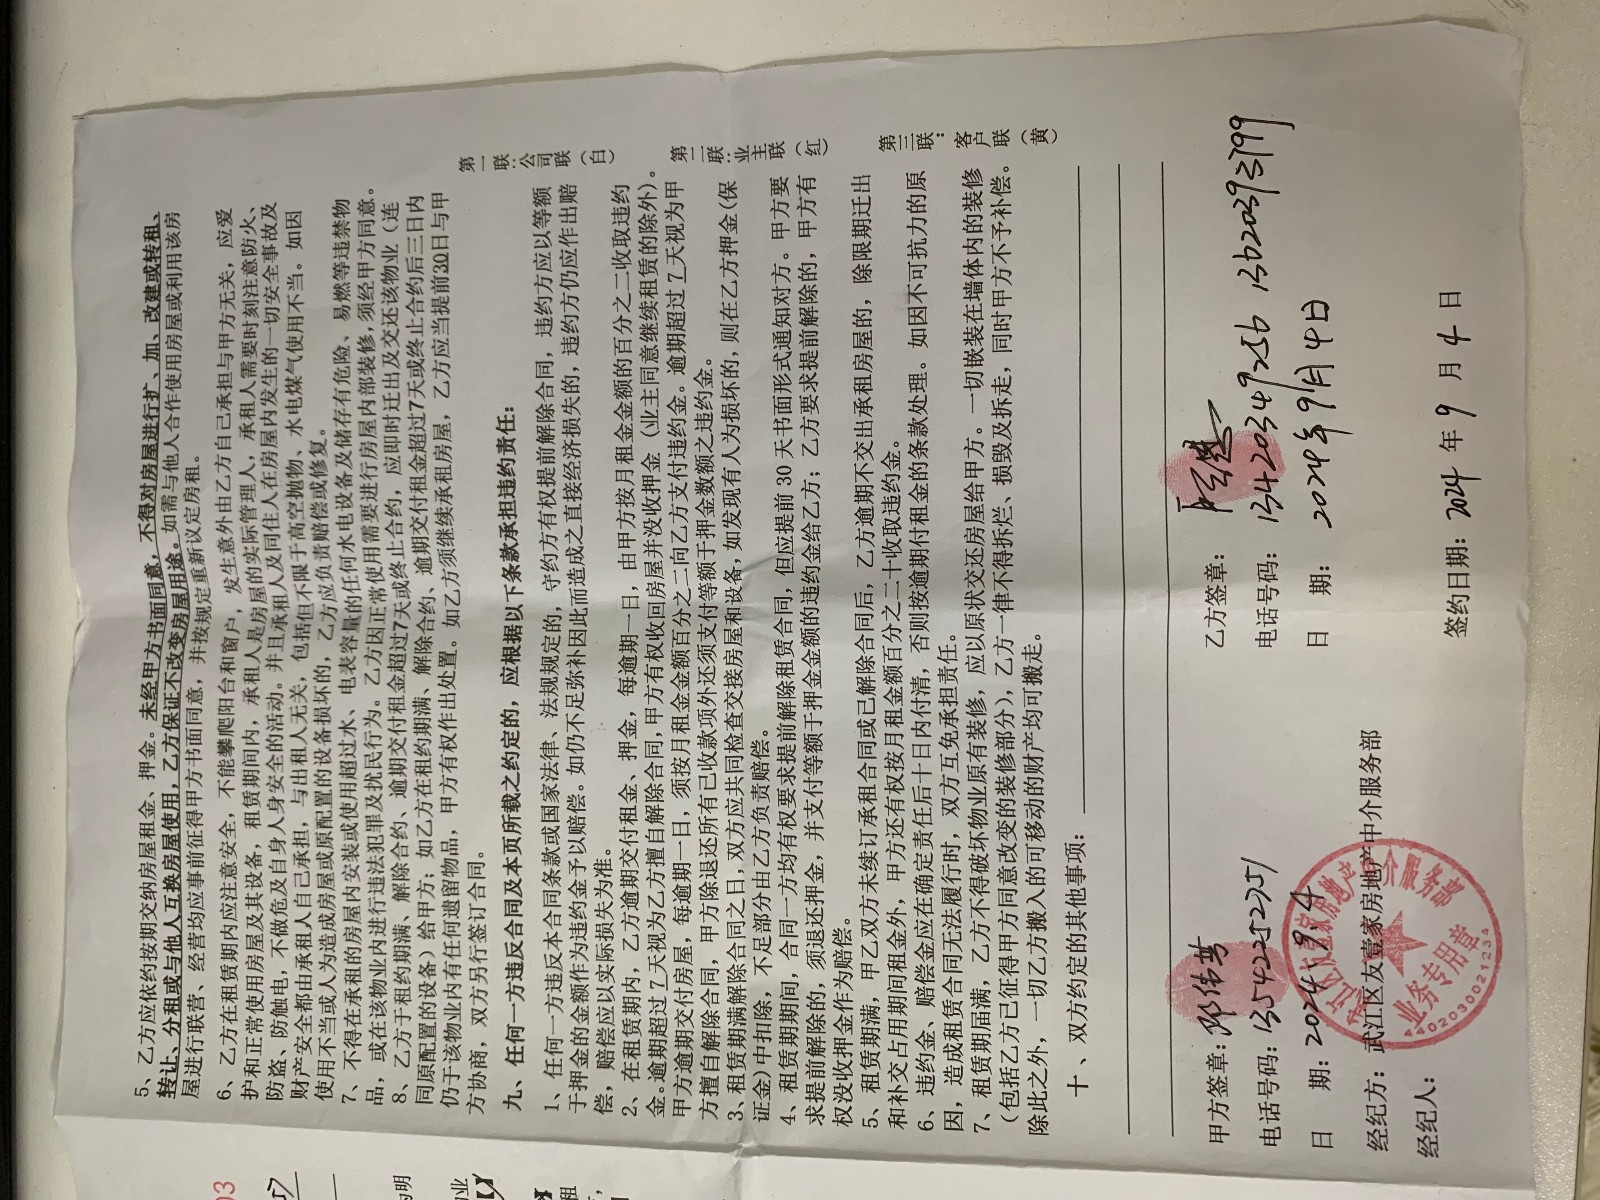 5、乙方应依约按期交纳房屋租金、押金。未经甲方书面同意，不得对房屋进行扩、加、改建或转租、
转让、分租或与他人互换房屋使用，乙方保证不改变房屋用途。如需与他人合作使用房屋或利用该房
屋进行联营、经营均应事前征得甲方书面同意，并按规定重新议定房租。
6、乙方在租赁期内应注意安全，不能攀爬阳台和窗户，发生意外由乙方自己承担与甲方无关，应爱
护和正常使用房屋及其设备，租赁期间内，承租人是房屋的实际管理人，承租人需要时刻注意防火、
防盗、防触电，不做危及自身人身安全的活动。并且承租人及同住人在房屋内发生的一切安全事故及
财产安全都由承租人自己承担，与出租人无关，包括但不限于高空抛物、水电煤气使用不当。如因
使用不当或人为造成房屋或原配置的设备损坏的，乙方应负责赔偿或修复。
7、不得在承租的房屋内安装或使用超过水、电表容量的任何水电设备及储存有危险、易燃等违禁物
品，或在该物业内进行违法犯罪及扰民行为。乙方因正常使用需要进行房屋内部装修，须经甲方同意。
8、乙方于租约期满、解除合约、逾期交付租金超过7天或终止合约，应即时迁出及交还该物业（连
同原配置的设备）给甲方；如乙方在租约期满、解除合约、逾期交付租金超过7天或终止合约后三日内
仍于该物业内有任何遗留物品，甲方有权作出处置。如乙方须继续承租房屋，乙方应当提前30日与甲
方协商，双方另行签订合同。
九、任何一方违反合同及本页所载之约定的，应根据以下条款承担违约责任：
1、任何一方违反本合同条款或国家法律、法规规定的，守约方有权提前解除合同，违约方应以等额
于押金的金额作为违约金予以赔偿。如仍不足弥补因此而造成之直接经济损失的，违约方仍应作出赔
偿，赔偿应以实际损失为准。
2、在租赁期内，乙方逾期交付租金、押金，每逾期一日，由甲方按月租金金额的百分之二收取违约
金。逾期超过 7 天视为乙方擅自解除合同，甲方有权收回房屋并没收押金（业主同意继续租赁的除外）。
甲方逾期交付房屋，每逾期一日，须按月租金金额百分之二向乙方支付违约金。逾期超过 7 天视为甲
方擅自解除合同，甲方除退还所有已收款项外还须支付等额于押金数额之违约金。
3、租赁期满解除合同之日，双方应共同检查交接房屋和设备，如发现有人为损坏的，则在乙方押金（保
证金）中扣除，不足部分由乙方负责赔偿。
4、租赁期期间，合同一方均有权要求提前解除租赁合同，但应提前 30 天书面形式通知对方。甲方要
求提前解除的，须退还押金，并支付等额于押金金额的违约金给乙方；乙方要求提前解除的，甲方有
权没收押金作为赔偿。
5、租赁期满，甲乙双方未续订承租合同或已解除合同后，乙方逾期不交出承租房屋的，除限期迁出
和补交占用期间租金外，甲方还有权按月租金额百分之二十收取违约金。
6、违约金、赔偿金应在确定责任后十日内付清，否则按逾期付租金的条款处理。如因不可抗力的原
因，造成租赁合同无法履行时，双方互免承担责任。
7、租赁期届满，乙方不得破坏物业原有装修，应以原状交还房屋给甲方。一切嵌装在墙体内的装修
（包括乙方已征得甲方同意改变的装修部分），乙方一律不得拆烂、损毁及拆走，同时甲方不予补偿。
除此之外，一切乙方搬入的可移动的财产均可搬走。
十、双方约定的其他事项：
第一联：公司联（白）
第二联：业主联（红）
第三联：客户联（黄）
甲方签章：
乙方签章：
电话号码：13542252751
电话号码：13420349256 13620393799
日 期：2024 9 4
日 期：2024年9月4日
经纪方：武江区友壹家房地产中介服务部
经纪人：
签约日期：2024 年 9 月 4 日
武江区友壹家房地产中介服务部
业务专用章
4402030021234